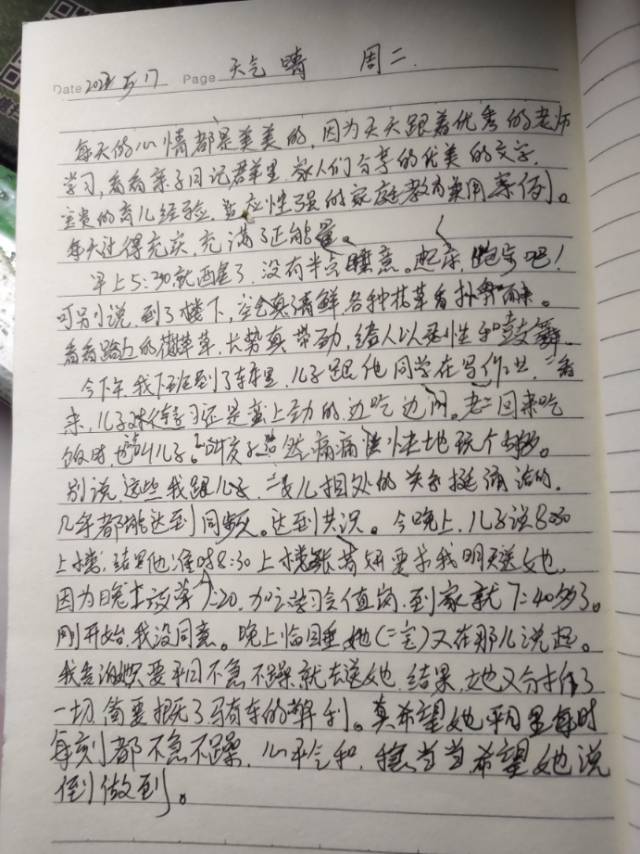 Date 2022 5.17 Page 天气 晴 周二
每天的心情都是美美的,因为天天跟着优秀的老师
学习,看看亲子日记群里,家人们分享的优美的文字,
宝贵的育儿经验,适应性强的家庭教育案例。
每天过得充实,充满了正能量。
早上5:30就醒了,没有半点睡意。起床,跑步吧!
可别小说,到了楼下,空气真清鲜,各种花草香扑鼻而来。
看看路边的花草,长势真带劲,给人以柔性和鼓舞。
今下午,我下班到了车里,儿子跟他同学在写作业,一看
来,儿子对待学习还是蛮上劲的,边吃边问。老二回来吃
饭时,儿子,然痛痛快快地玩个够。
别说,这些我跟儿子,二女儿相处的关系挺融洽的,
几乎都能达到同频。达到共识。今晚上,儿子说8:30
上楼,结果他准时8:30上楼。要求我明天送她,
因为晚上放学7:20,加之学习会值岗,到家就7:40多了。
刚开始,我没同意。晚上临睡,她(二宝)又在那儿说起。
我告诉她只要平日不急不躁就去送她,结果,她又分析了
一切,简要概括了骑车的弊利。真希望她平日里每时
每刻都不急不躁,心平气和,稳稳当当,希望她说
到做到。